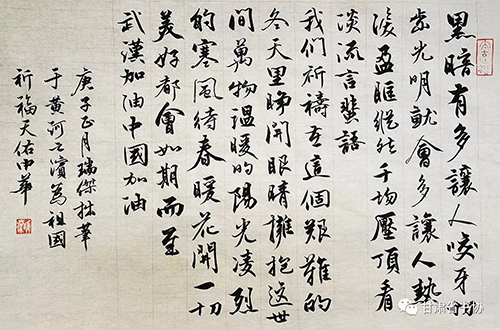 黑暗有多讓人咬牙切
齒光明就會多讓人熱
淚盈眶縱然千均壓頂看
淡流言蜚語
我们祈禱在這個艱難的
冬天里睁開眼睛擁抱這世
間萬物溫暖的陽光凌烈
的寒風待春暖花開一切
美好都會如期而至
武漢加油中國加油
庚子正月瑞傑拙筆
于黃河之濱為祖國
祈福天佑中華
甘肃省书协